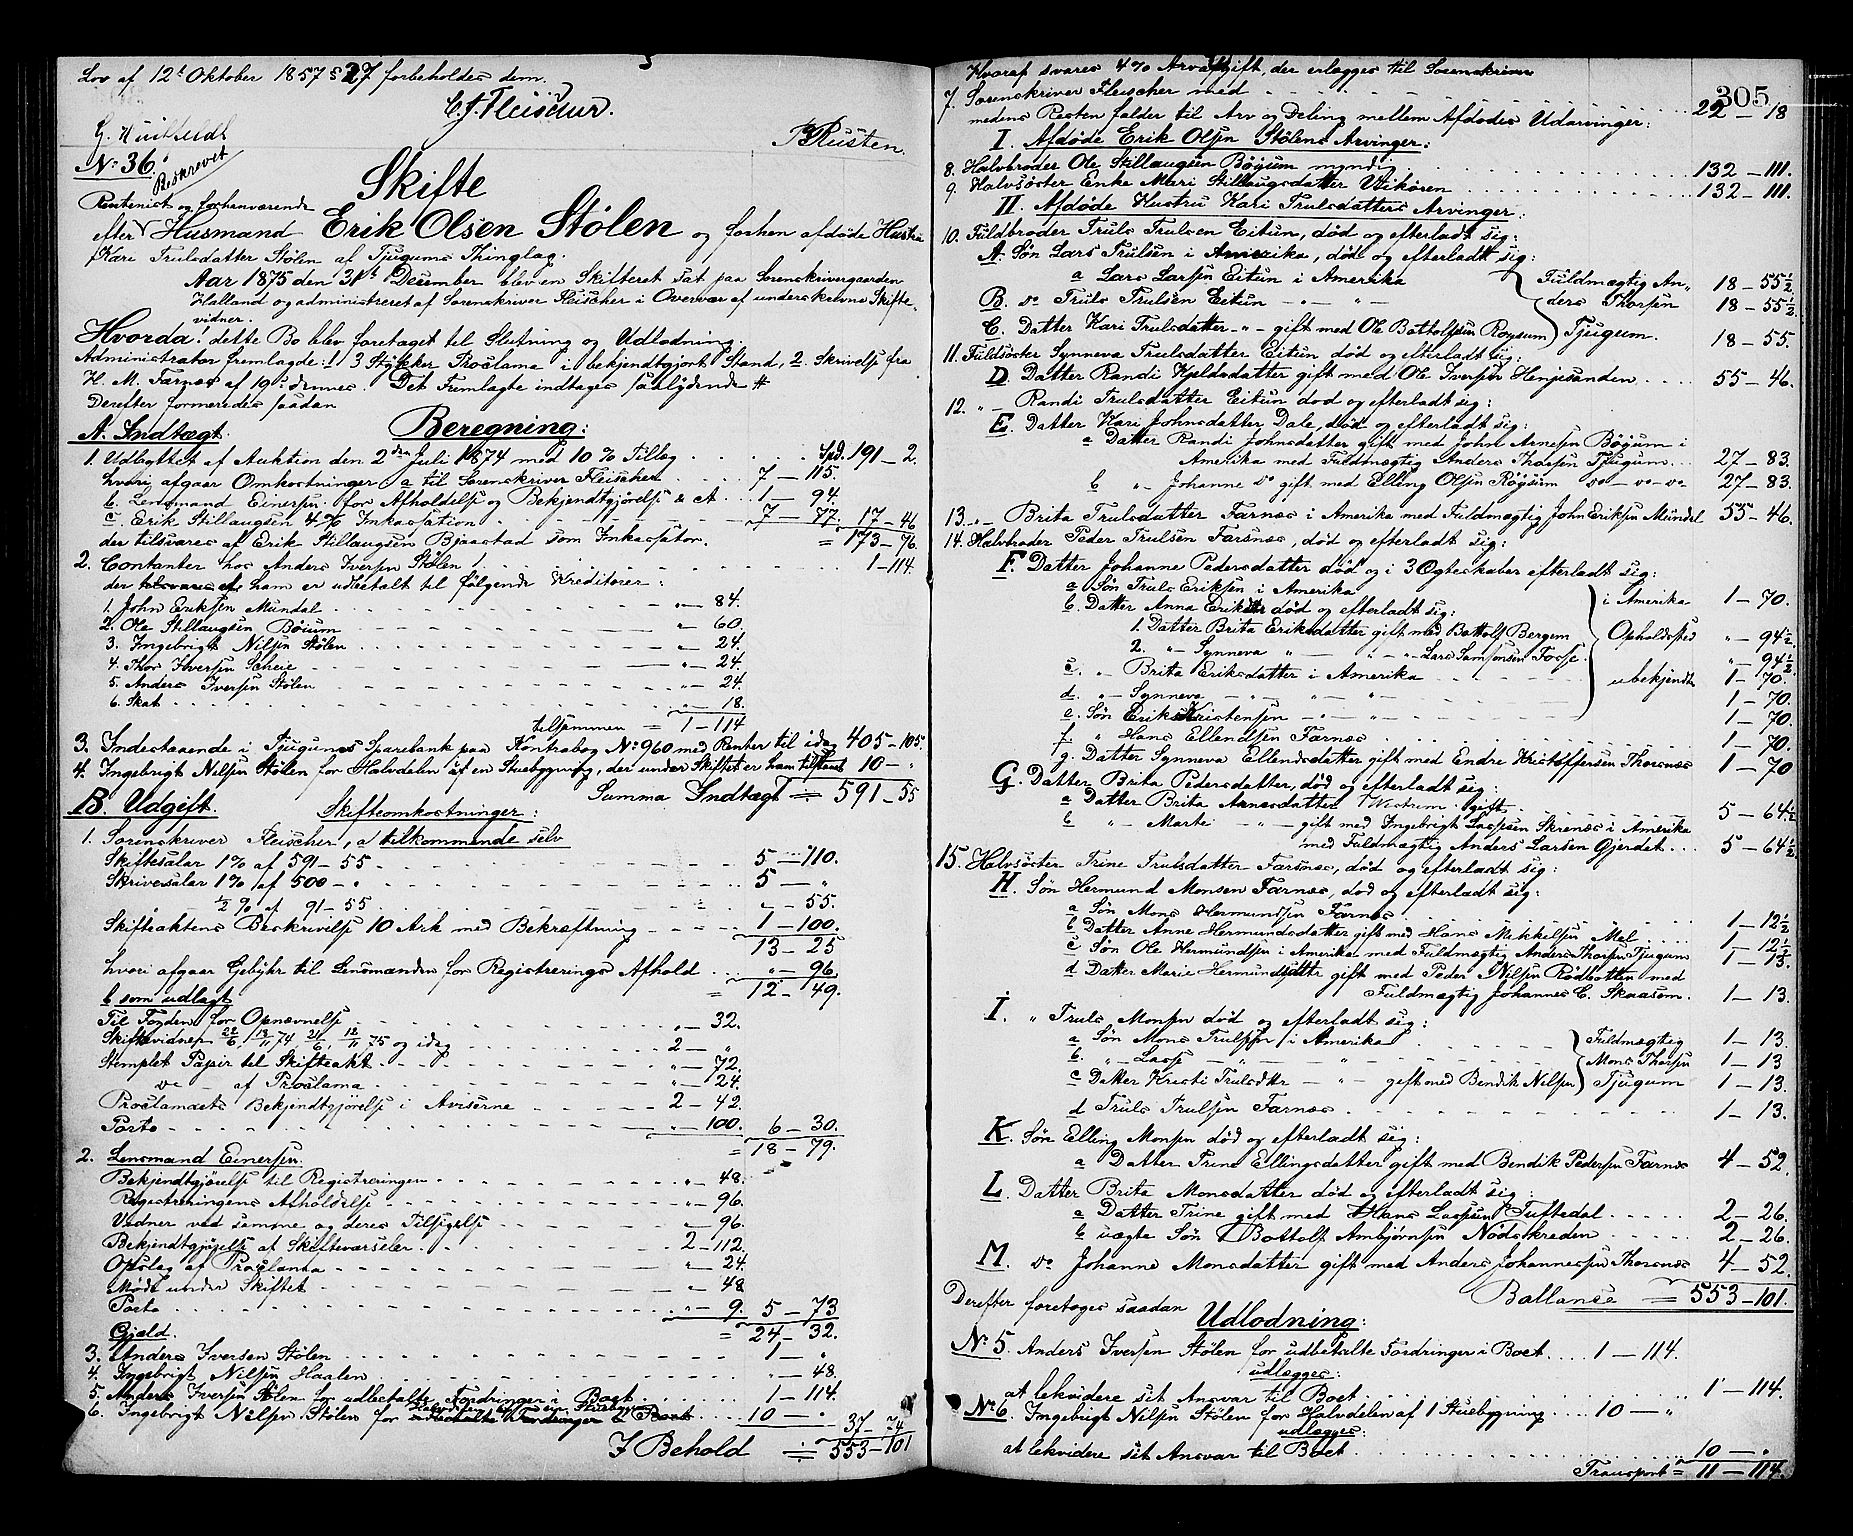 Lov af 12te Oktober 1857 § 27 forbeholdes dem.
C. J. Fleischer.
G. Huitfeldt
B Rusten.
No 36.
Beskrevet
Skifte
Rentenist og forhenværende
efter Husmand Erik Olsen Stölen og forhen afdöde Hustru
Kari Trulsdatter Stölen af Tjugums Thinglag.
Aar 1875 den 31te December blev en Skifteret sat paa Sorenskrivergaarden
Halland og administreret af Sorenskriver Fleischer i Overvær af underskrevne Skifte-
vidner.
Hvorda! dette Bo blev foretaget til Slutning og Udlodning.
Administrator fremlagde: 1 3 Stykker Proclama i bekjendtgjort Stand, 2. Skrivelse fra
H. M. Farnæs af 19de dennes. Det Fremlagte indtages saalydende #
Derefter formeredes saadan
A. Indtægt. Beregning:
1. Udbyttet af Auktion den 2den Juli 1874 med 10 % Tillæg . . . Spd. 191 - 2.
hvori afgaar Omkostninger a til Sorenskriver Fleischer . . . 7 - 115.
b. Lensmand Einersen for Afholdelse og Bekjendtgjörelse & ct . . 1 - 94.
c. Erik Stillaugsen 4 % Inkassation . . . 7 - 77. 17 - 46
der tilsvares af Erik Stillaugsen Bjaastad som Inkassator. = 173 - 76.
2. Contanter hos Anders Iversen Stölen . . . 1 - 114.
der tilsvares af ham er udbetalt til fölgende Kreditorer:
1. John Eriksen Mundal . . . " - 84.
2. Ole Stillaugsen Böium . . . " - 60.
3. Ingebrigt Nilsen Stölen . . . " - 24.
4. Thor Iversen Scheie . . . " - 24.
5. Anders Iversen Stölen . . . " - 24.
6. Skat . . . " - 18.
tilsammen = 1 - 114
3. Indestaaende i Tjugums Sparebank paa Kontrabog No 960 med Renter til idag 405 - 105.
4. Ingebrigt Nilsen Stölen for Halvdelen af en Stuebygning, der under Skiftet er ham tilstaaet 10 - "
Summa Indtægt = 591 - 55
B. Udgift. Skifteomkostninger:
1. Sorenskriver Fleischer, a tilkommende selv
Skiftesalær 1 % af 591 - 55 . . . 5 - 110.
Skriversalær 1 % af 500 - " . . . 5 - "
1/2 % af 91 - 55 . . . " - 55.
Skifteaktens Beskrivelse 10 Ark med Bekræftning . . . 1 - 100.
13 - 25
hvori afgaar Gebyhr til Lensmanden for Registrerings Afhold . . . " - 96.
b som udlagt = 12 - 49.
Til Fonden for Opnævnelse . . . " - 32.
Skiftevidner 22/6, 13/11 74, 21/6, 12/11 75 og idag . . . 2 - "
Stemplet Papir til Skifteakt . . . " - 72.
do - af Proclama . . . " - 24.
Proclamaets Bekjendtgjörelse i Aviserne . . . 2 - 42.
Porto . . . " - 100. 6 - 30.
= 18 - 79.
2. Lensmand Einersen.
Bekjendtgjörelse til Registreringen . . . " - 48.
Registreringens Afholdelse . . . " - 96.
Vidner ved samme og deres Tilsigelse . . . " - 96.
Bekjendtgjörelse af Skiftevarseler . . . 2 - 112.
Opslag af Proclama . . . " - 24.
Mödt under Skiftet . . . " - 48
Porto . . . " - 9. 5 - 73
Gjæld. = 24 - 32.
3. Anders Iversen Stölen . . . 1 - "
4. Ingebrigt Nilsen Haalen . . . " - 48.
5. Anders Iversen Stölen for udbetalte Fordringer i Boet . . 1 - 114.
6. Ingebrigt Nilsen Stölen for udbetalte Fordringer i Boet . . . 10 - " 37 - 74
I Behold = 553 - 101
305
Hvoraf svares 4 % Arveafgift, der erlægges til Sorenskriver
7. Sorenskriver Fleischer med . . . 22 - 18
medens Resten falder til Arv og Deling mellem Afdödes Udarvinger:
I. Afdöde Erik Olsen Stölens Arvinger:
8. Halvbroder Ole Stillaugsen Böyum myndig . . . 132 - 111.
9. Halvsöster Enke Mari Stillaugsdatter Vikören . . . 132 - 111.
II. Afdöde Hustru Kari Trulsdatters Arvinger:
10. Fuldbroder Truls Trulsen Eitun, död og efterladt sig:
A. Sön Lars Trulsen i Amerika, död og efterladt sig:
a Lars Larsen Eitun i Amerika Fuldmægtig An- 18 - 55 1/2
B. do Truls Trulsen Eitun - " - " ders Thorsen 18 - 55 1/2.
C. Datter Kari Trulsdatter - " - gift med Ole Bottolfsen Röysum Tjugum. 18 - 55.
11. Fuldsöster Synneva Trulsdatter Eitun död og efterladt sig:
D. Datter Randi Kjeldsdatter gift med Ole Iversen Henjesanden . . . 55 - 46.
12. " - Randi Trulsdatter Eitun död og efterladt sig:
E. Datter Kari Johnsdatter Dale, död og efterladt sig:
a Datter Randi Johnsdatter gift med John Arnesen Böyum i
Amerika med Fuldmægtig Anders Thorsen Tjugum . . . 27 - 83.
b " - Johanne do gift med Elling Olsen Röysum do - do - do 27 - 83.
13. " - Brita Trulsdatter Farnæs i Amerika med Fuldmægtig John Eriksen Mundal 55 - 46.
14. Halvbroder Peder Trulsen Farsnæs, död og efterladt sig:
F. Datter Johanne Pedersdatter död og i 3 Ægteskaber efterladt sig:
a Sön Truls Eriksen i Amerika i Amerika 1 - 70.
b. Datter Anna Eriksdtr död og efterladt sig:
1. Datter Brita Eriksdatter gift med Bottolf Bergem Opholdssted " - 94 1/2
2. " - Synneva " - " - " - Lars Samsonsen Fosse. " - 94 1/2
c. " - Brita Eriksdatter i Amerika . . . ubekjendt 1 - 70.
d. " - Synneva - " - " - " - 1 - 70.
e. Sön Erik Kristensen - " - " - 1 - 70.
f. " Hans Ellendsen Farnæs . . . 1 - 70.
g. Datter Synneva Ellendsdatter gift med Endre Kristoffersen Thorsnæs 1 - 70
G. Datter Brita Pedersdatter, död og efterladt sig:
a Datter Brita Arnesdatter Westrem gift . . . 5 - 64 1/2
b " - Marte - " - gift med Ingebrigt Lassesen Skrenæs i Amerika
med Fuldmægtig Anders Larsen Gjerdet . . . 5 - 64 1/2.
15. Halvsöster Trine Trulsdatter Farsnæs, död og efterladt sig:
H. Sön Hermund Monsen Farnæs, död og efterladt sig:
a Sön Mons Hermundsen Farnæs . . . 1 - 12 1/2
b Datter Anne Hermundsdatter gift med Hans Mikkelsen Mel . . . 1 - 12 1/2
c Sön Ole Hermundsen i Amerika med Fuldmægtig Anders Thorsen Tjugum 1 - 13.
d Datter Marie Hermundsdatter gift med Peder Nilsen Rödbotten med
Fuldmægtig Johannes C. Skaasem. 1 - 13.
I. " Truls Monsen död og efterladt sig:
a Sön Mons Trulsen i Amerika . . . Fuldmægtig 1 - 13.
b. " - Lasse - " - " Mons Thorsen 1 - 13
c Datter Kristi Trulsdtr - " - gift med Bendik Nilsen Tjugum 1 - 13.
d Truls Trulsen Farnæs . . . 1 - 13.
K. Sön Elling Monsen död og efterladt sig:
a Datter Trine Ellingsdatter gift med Bendik Pedersen Farnæs 4 - 52.
L. Datter Brita Monsdatter död og efterladt sig:
a Datter Trine gift med Hans Lassesen Tuftedal . . . 2 - 26.
b uægte Sön Bottolf Ambjörnsen Nödskreden . . . 2 - 26.
M. do Johanne Monsdatter gift med Anders Johannessen Thorsnæs 4 - 52.
Ballance = 553 - 101.
Derefter foretoges saadan Udlodning:
No 5. Anders Iversen Stölen for udbetalte Fordringer i Boet . . . 1 - 114.
udlægges:
at lekvidere sit Ansvar til Boet . . . 1 - 114.
No 6. Ingebrigt Nilsen Stölen for Halvdelen af 1 Stuebygning . . . 10 - "
udlægges:
at lekvidere sit Ansvar til Boet . . . 10 - "
Transport = 11 - 114.